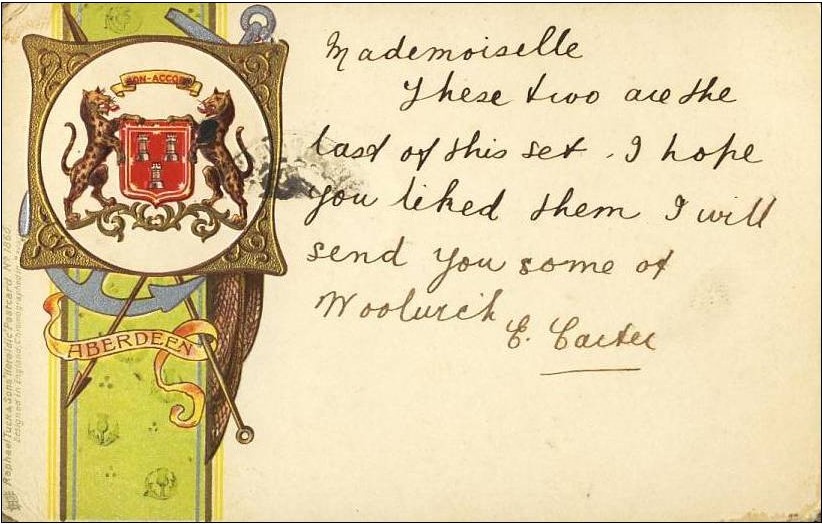 BON-ACCORD
ABERDEEN
Raphael Tuck & Sons' "Heraldic" Postcard No. 1886
Designed in England, Chromographed in
Mademoiselle
These two are the
last of this set. I hope
you liked them I will
send you some of
Woolwich
E. Carter